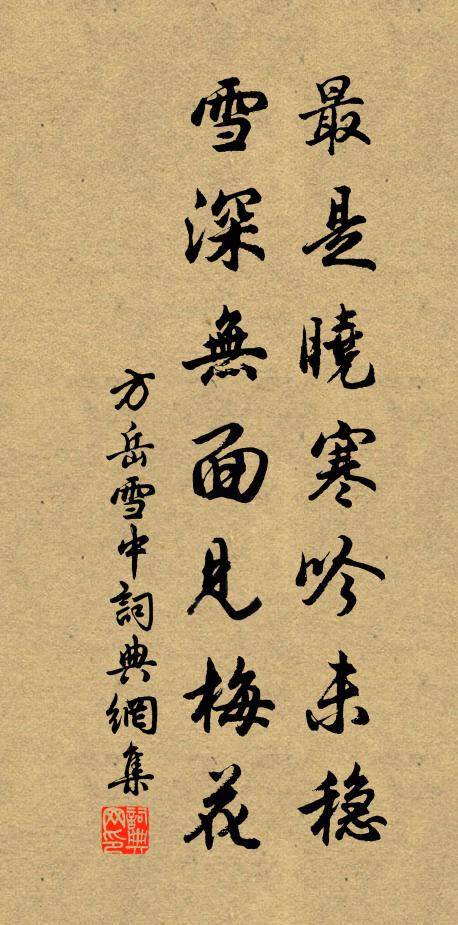 最是曉寒吟未穩
雪深無面見梅花
方岳雪中詞典網集
詞典网印